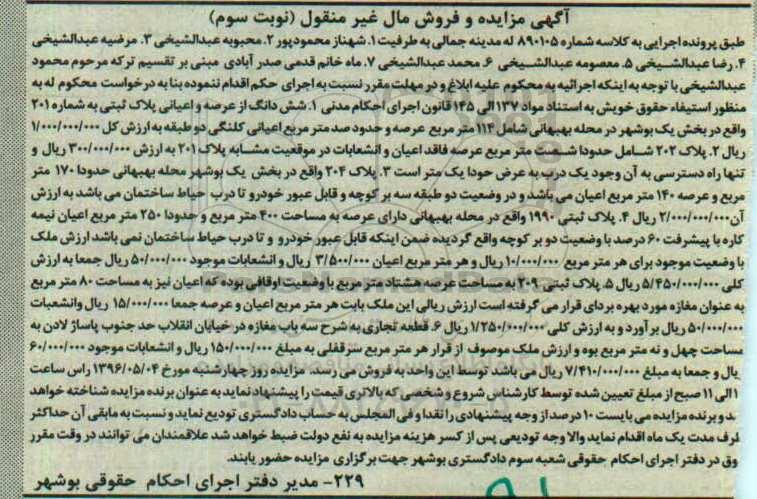 آگهی مزایده و فروش مال غیر منقول (نوبت سوم)
طبق پرونده اجرایی به کلاسه شماره ۸۹۰۱۰۵ له مدینه جمالی به طرفیت ۱. شهناز محمودپور ۲. محبوبه عبدالشیخی ۳. مرضیه عبدالشیخی
۴. رضا عبدالشیخی ۵. معصومه عبدالشیخی ۶. محمد عبدالشیخی ۷. ماه خانم قدمی صدر آبادی مبنی بر تقسیم ترکه مرحوم محمود
عبدالشیخی با توجه به اینکه اجرائیه به محکوم علیه ابلاغ و در مهلت مقرر نسبت به اجرای حکم اقدام ننموده بنا به درخواست محکوم له به
منظور استیفاء حقوق خویش به استناد مواد ۱۳۷ الی ۱۴۵ قانون اجرای احکام مدنی ۱. شش دانگ از عرصه و اعیانی پلاک ثبتی به شماره ۲۰۱
واقع در بخش یک بوشهر در محله بهبهانی شامل ۱۱۴ متر مربع عرصه و حدود صد متر مربع اعیانی کلنگی دو طبقه به ارزش کل ۱/۰۰۰/۰۰۰/۰۰۰
ریال ۲. پلاک ۲۰۲ شامل حدودا شصت متر مربع عرصه فاقد اعیان و انشعابات در موقعیت مشابه پلاک ۲۰۱ به ارزش ۳۰۰/۰۰۰/۰۰۰ ریال و
تنها راه دسترسی به آن وجود یک درب به عرض حودا یک متر است ۳. پلاک ۲۰۴ واقع در بخش یک بوشهر محله بهبهانی حدودا ۱۷۰ متر
مربع و عرصه ۱۴۰ متر مربع اعیان می باشد و در وضعیت دو طبقه سه بر کوچه و قابل عبور خودرو تا درب حیاط ساختمان می باشد به ارزش
آن ۲/۰۰۰/۰۰۰/۰۰۰ ریال ۴. پلاک ثبتی ۱۹۹۰ واقع در محله بهبهانی دارای عرصه به مساحت ۴۰۰ متر مربع و حدودا ۲۵۰ متر مربع اعیان نیمه
کاره با پیشرفت ۶۰ درصد با وضعیت دو بر کوچه واقع گردیده ضمن اینکه قابل عبور خودرو و تا درب حیاط ساختمان نمی باشد ارزش ملک
با وضعیت موجود برای هر متر مربع ۱۰/۰۰۰/۰۰۰ ریال و هر متر مربع اعیان ۳/۵۰۰/۰۰۰ ریال و انشعابات موجود ۵۰/۰۰۰/۰۰۰ ریال جمعا به ارزش
کلی ۵/۴۵۰/۰۰۰/۰۰۰ ریال ۵. پلاک ثبتی ۲۰۹ به مساحت عرصه هشتاد متر مربع با وضعیت اوقافی بوده که اعیان نیز به مساحت ۸۰ متر مربع
به عنوان مغازه مورد بهره بردای قرار می گرفته است ارزش ریالی این ملک بابت هر متر مربع اعیان و عرصه جمعا ۱۵/۰۰۰/۰۰۰ ریال وانشعبات
۵۰/۰۰۰/۰۰۰ ریال بر آورد و به ارزش کلی ۱/۲۵۰/۰۰۰/۰۰۰ ریال ۶. قطعه تجاری به شرح سه باب مغازه در خیابان انقلاب حد جنوب پاساژ لادن به
مساحت چهل و نه متر مربع بوه و ارزش ملک موصوف از قرار هر متر مربع سرقفلی به مبلغ ۱۵۰/۰۰۰/۰۰۰ ریال و انشعابات موجود ۶۰/۰۰۰/۰۰۰
یال و جمعا به مبلغ ۷/۴۱۰/۰۰۰/۰۰۰ ریال می باشد توسط این واحد به فروش می رسد. مزایده روز چهارشنبه مورخ ۱۳۹۶/۰۵/۰۴ راس ساعت
۱ الی ۱۱ صبح از مبلغ تعیین شده توسط کارشناس شروع و شخصی که بالاتری قیمت را پیشنهاد نماید به عنوان برنده مزایده شناخته خواهد
د و برنده مزایده می بایست ۱۰ درصد از وجه پیشنهادی را نقدا و فی المجلس به حساب دادگستری تودیع نماید و نسبت به مابقی آن حداکثر
ظرف مدت یک ماه اقدام نماید والا وجه تودیعی پس از کسر هزینه مزایده به نفع دولت ضبط خواهد شد علاقمندان می توانند در وقت مقرر
وق در دفتر اجرای احکام حقوقی شعبه سوم دادگستری بوشهر جهت برگزاری مزایده حضور یابند.
۲۲۹- مدیر دفتر اجرای احکام حقوقی بوشهر